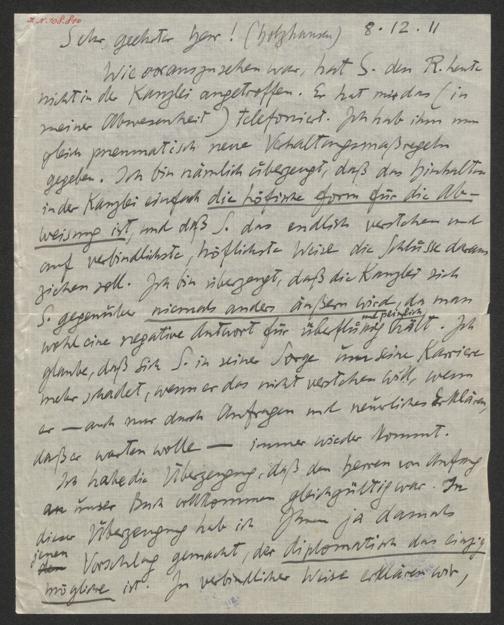 Z.N. 108.810
Sehr geehrter Herr! (Holzhausen) 8.12.11
Wie vorauszusehen war, hat S. den R. heute
nicht in der Kanzlei angetroffen. Er hat mir das (in
meiner Abwesenheit) telefoniert. Ich hab ihm nun
gleich pneumatisch neue Verhaltungsmaßregeln
gegeben. Ich bin nämlich überzeugt, daß das Hinhalten
in der Kanzlei einfach die höfische Form für die Ab-
weisung ist, und daß S. das endlich verstehen und
auf verbindlichste, höflichste Weise die Schlüsse daraus
ziehen soll. Ich bin überzeugt, daß die Kanzlei sich
S. gegenüber niemals anders äußern wird, da man
wohl eine negative Antwort für überflüssig und peinlich hält. Ich
glaube, daß sich S. in seiner Sorge um seine Karriere
mehr schadet, wenn er das nicht verstehen will, wenn
er — auch nur durch Anfragen und neuerliches Erklären,
daß er warten wolle — immer wieder kommt.
Ich habe die Überzeugung, daß den Herren von Anfang
an unser Buch vollkommen gleichgültig war. In
dieser Überzeugung hab ich Ihnen ja damals
jenen Vorschlag gemacht, der diplomatisch das einzig
mögliche ist. In verbindlicher Weise erklären wir,